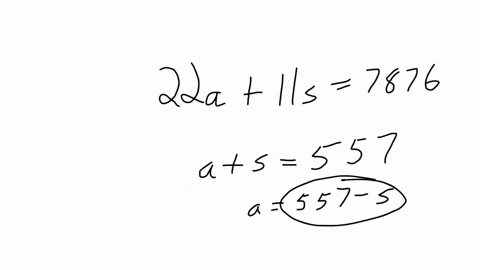 22a + 11s = 7876
a + s = 557
a = 557 - s